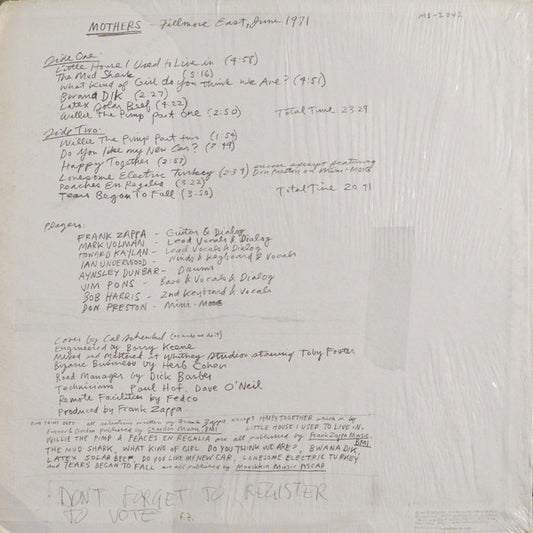 MOTHERS - Fillmore East, June 1971
MS-2042
Side One:
Little House I Used to Live in (4:58)
The Mud Shark (5:16)
What Kind of Girl do you think We Are? (4:51)
Bwana Dik (2:27)
Latex Solar Beef (4:22)
Willie The Pimp Part One (2:50) Total Time 23:29
Side Two:
Willie The Pimp Part two (1:54)
Do You like my New Car? (7:49)
Happy Together (2:57)
Lonesome Electric Turkey (2:39) encore excerpt featuring Don Preston on Mini-Moog
Peaches En Regalia (3:22)
Tears Began To Fall (3:50) Total Time 20:41
Players:
FRANK ZAPPA - Guitar & Dialog
MARK VOLMAN - Lead Vocals & Dialog
HOWARD KAYLAN - Lead Vocals & Dialog
IAN UNDERWOOD - Winds & Keyboard & Vocals
AYNSLEY DUNBAR - Drums
JIM PONS - Bass & Vocals & Dialog
BOB HARRIS - 2nd Keyboard & Vocals
DON PRESTON - Mini-Moog
Cover by Cal Schenkel (he made me do it)
Engineered by Barry Keene
Mixed and Mastered at Whitney Studios starring Toby Foster
Bizarre Business by Herb Cohen
Road Manager by Dick Barber
Technicians Paul Hof, Dave O'Neil
Remote Facilities by Fedco
Produced by Frank Zappa
FINE PRINT DEPT. all selections written by Frank Zappa except HAPPY TOGETHER which is by
Bonner & Gordon published by Chardon Music, BMI LITTLE HOUSE I USED TO LIVE IN,
WILLIE THE PIMP & PEACES EN REGALIA are all published by Frank Zappa Music, BMI
THE MUD SHARK, WHAT KIND OF GIRL DO YOU THINK WE ARE?, BWANA DIK,
LATEX SOLAR BEEF, DO YOU LIKE MY NEW CAR, LONESOME ELECTRIC TURKEY
and TEARS BEGAN TO FALL are all published by Munchkin Music ASCAP
DON'T FORGET TO REGISTER
TO VOTE
F.Z.